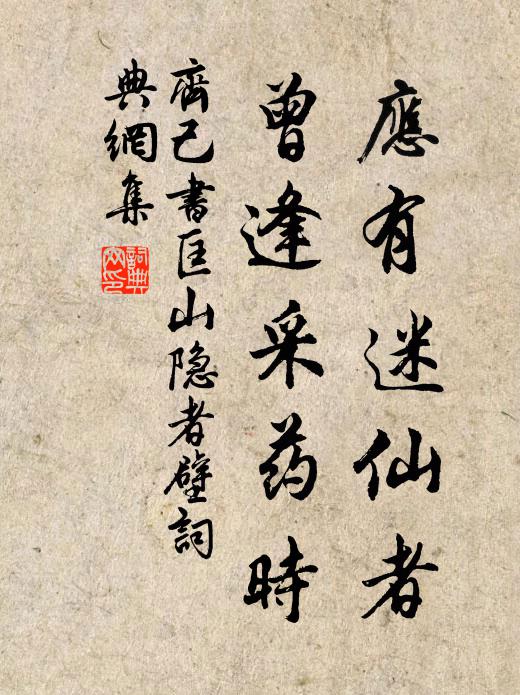 應有迷仙者
曾逢采药時
齊己書匡山隐者壁詞
典網集
詞典
网印